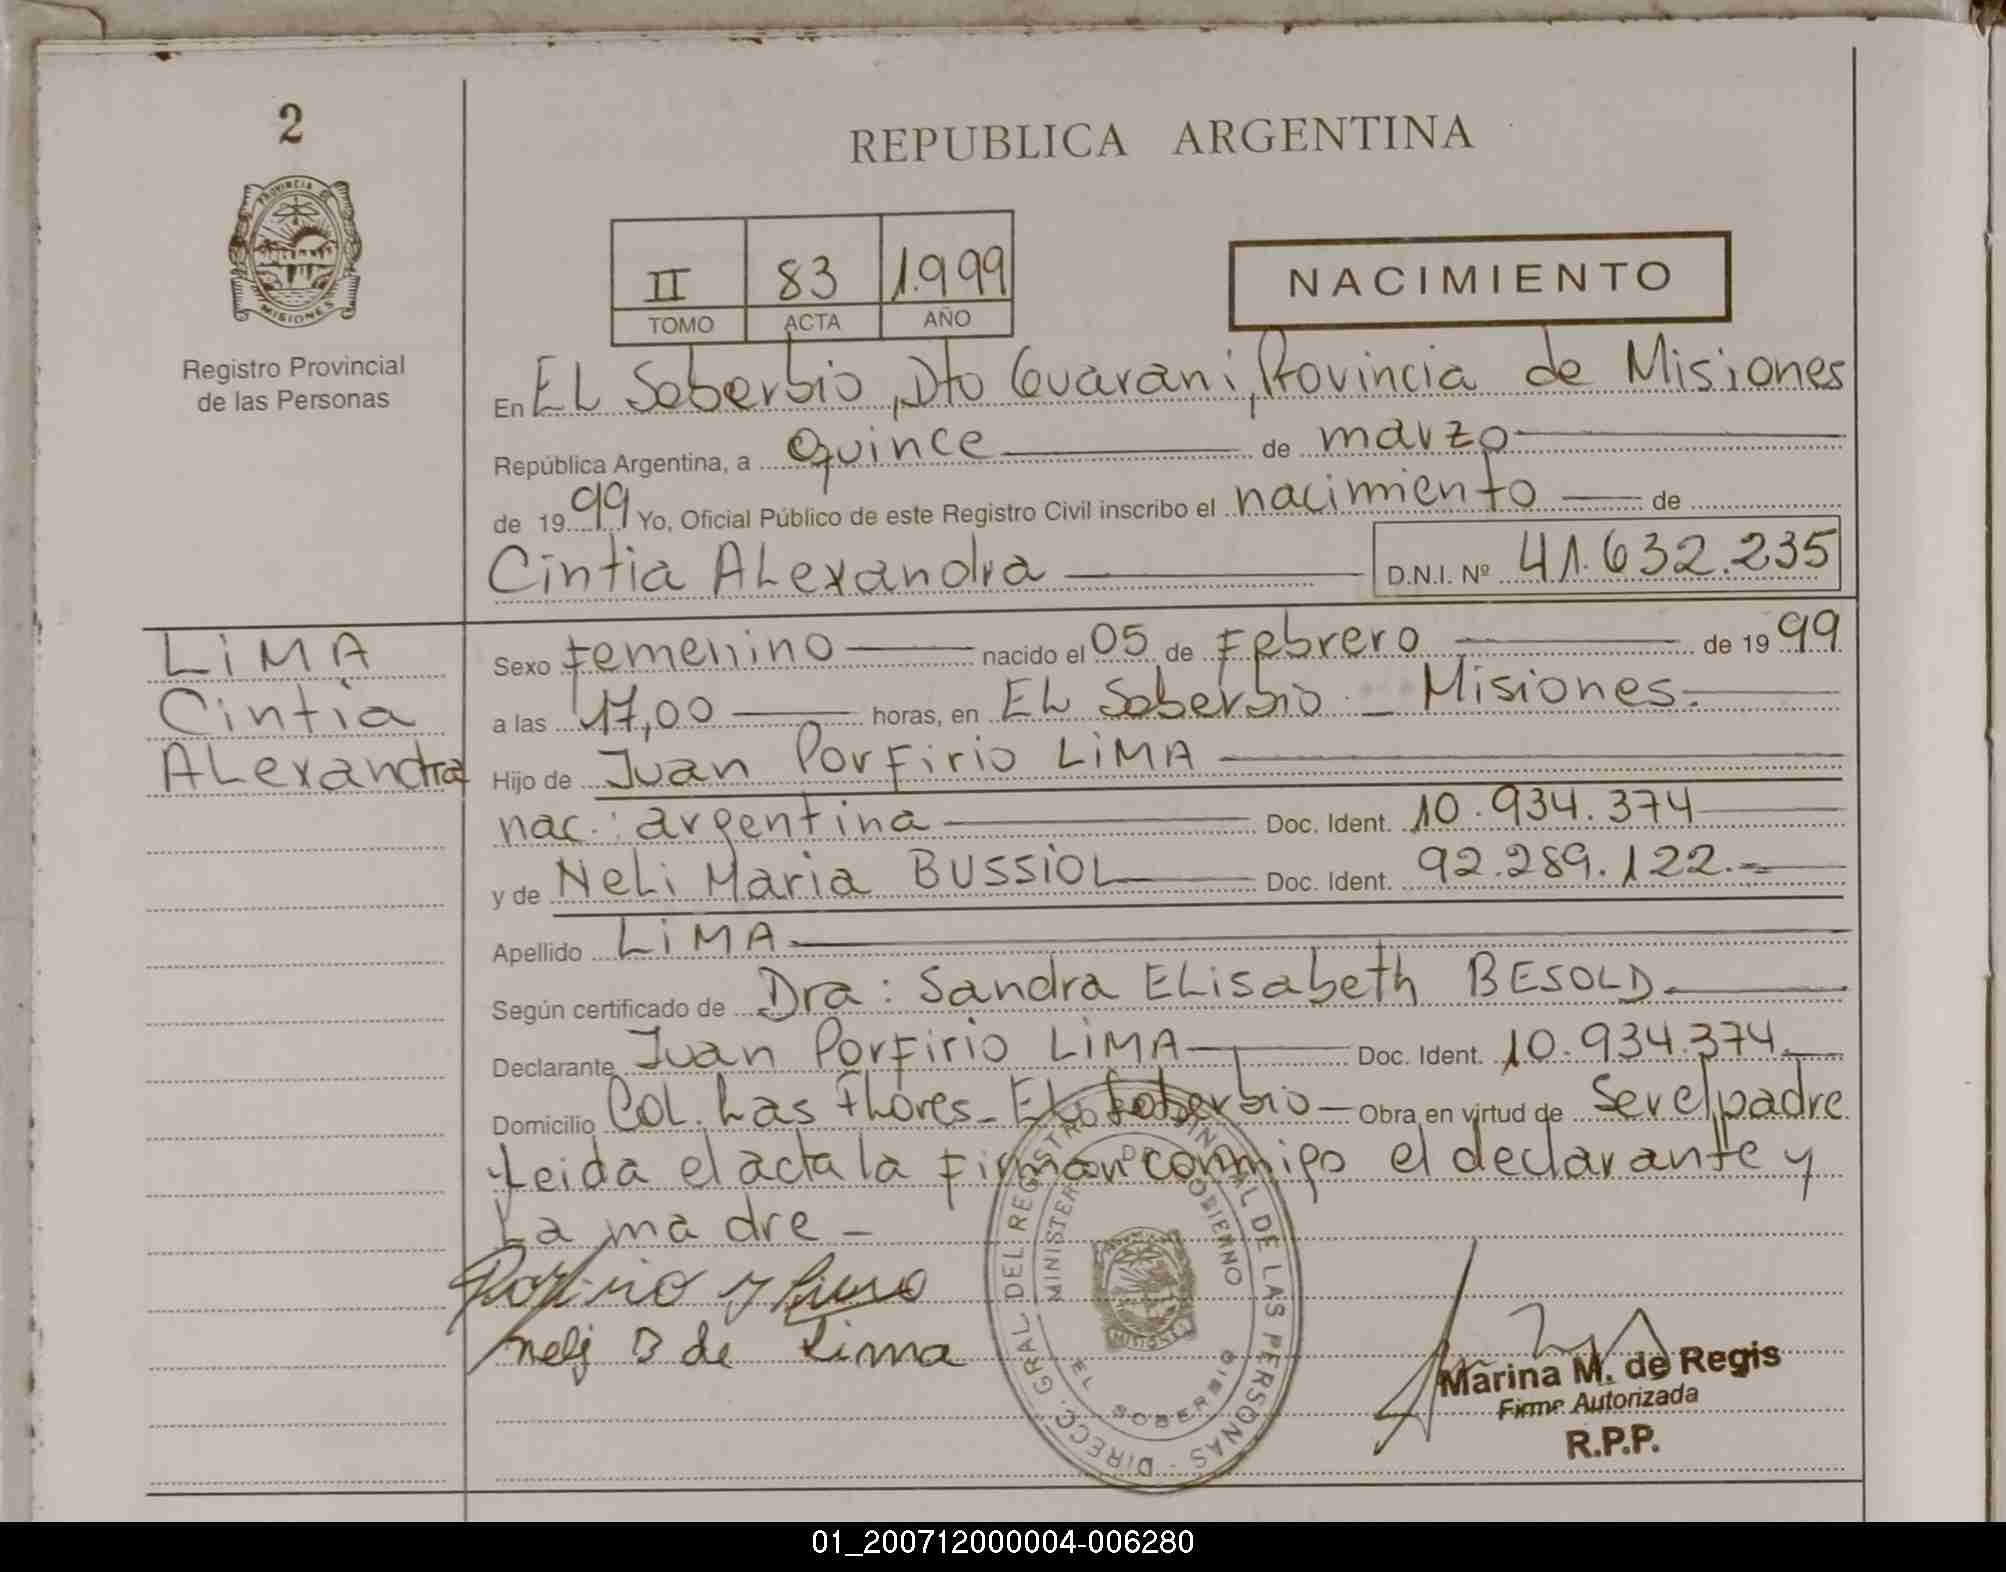 2
PROVINCIA DE
MISIONES
Registro Provincial
de las Personas
REPUBLICA ARGENTINA
II 83 1.999
TOMO ACTA AÑO
NACIMIENTO
En EL Soberbio, Dto Guarani, Provincia de Misiones
República Argentina, a quince de marzo
de 1999 Yo, Oficial Público de este Registro Civil inscribo el nacimiento de
Cintia ALexandra D.N.I. Nº 41.632.235
LiMA
Cintia
ALexandra
Sexo Femenino nacido el 05 de Febrero de 1999
a las 17,00 horas, en EL Soberbio - Misiones.
Hijo de Juan PorFirio LiMA
nac.: argentina Doc. Ident. 10.934.374
y de NeLi Maria BUSSiOL Doc. Ident. 92.289.122.=
Apellido LiMA
Según certificado de Dra: Sandra ELisabeth BESOLD.
Declarante Juan PorFirio LiMA Doc. Ident. 10.934.374.
Domicilio CoL. Las FLores - EL Soberbio - Obra en virtud de Ser el padre
Leida el acta la Firman conmigo el declarante y
La madre -
Porfirio y Lima
nelj B de Lima
DIRECC. GRAL. DEL REGISTRO PROVINCIAL DE LAS PERSONAS -
MINISTERIO DE GOBIERNO
MISIONES
EL SOBERBIO
Marina M. de Regis
Firma Autorizada
R.P.P.
01_200712000004-006280